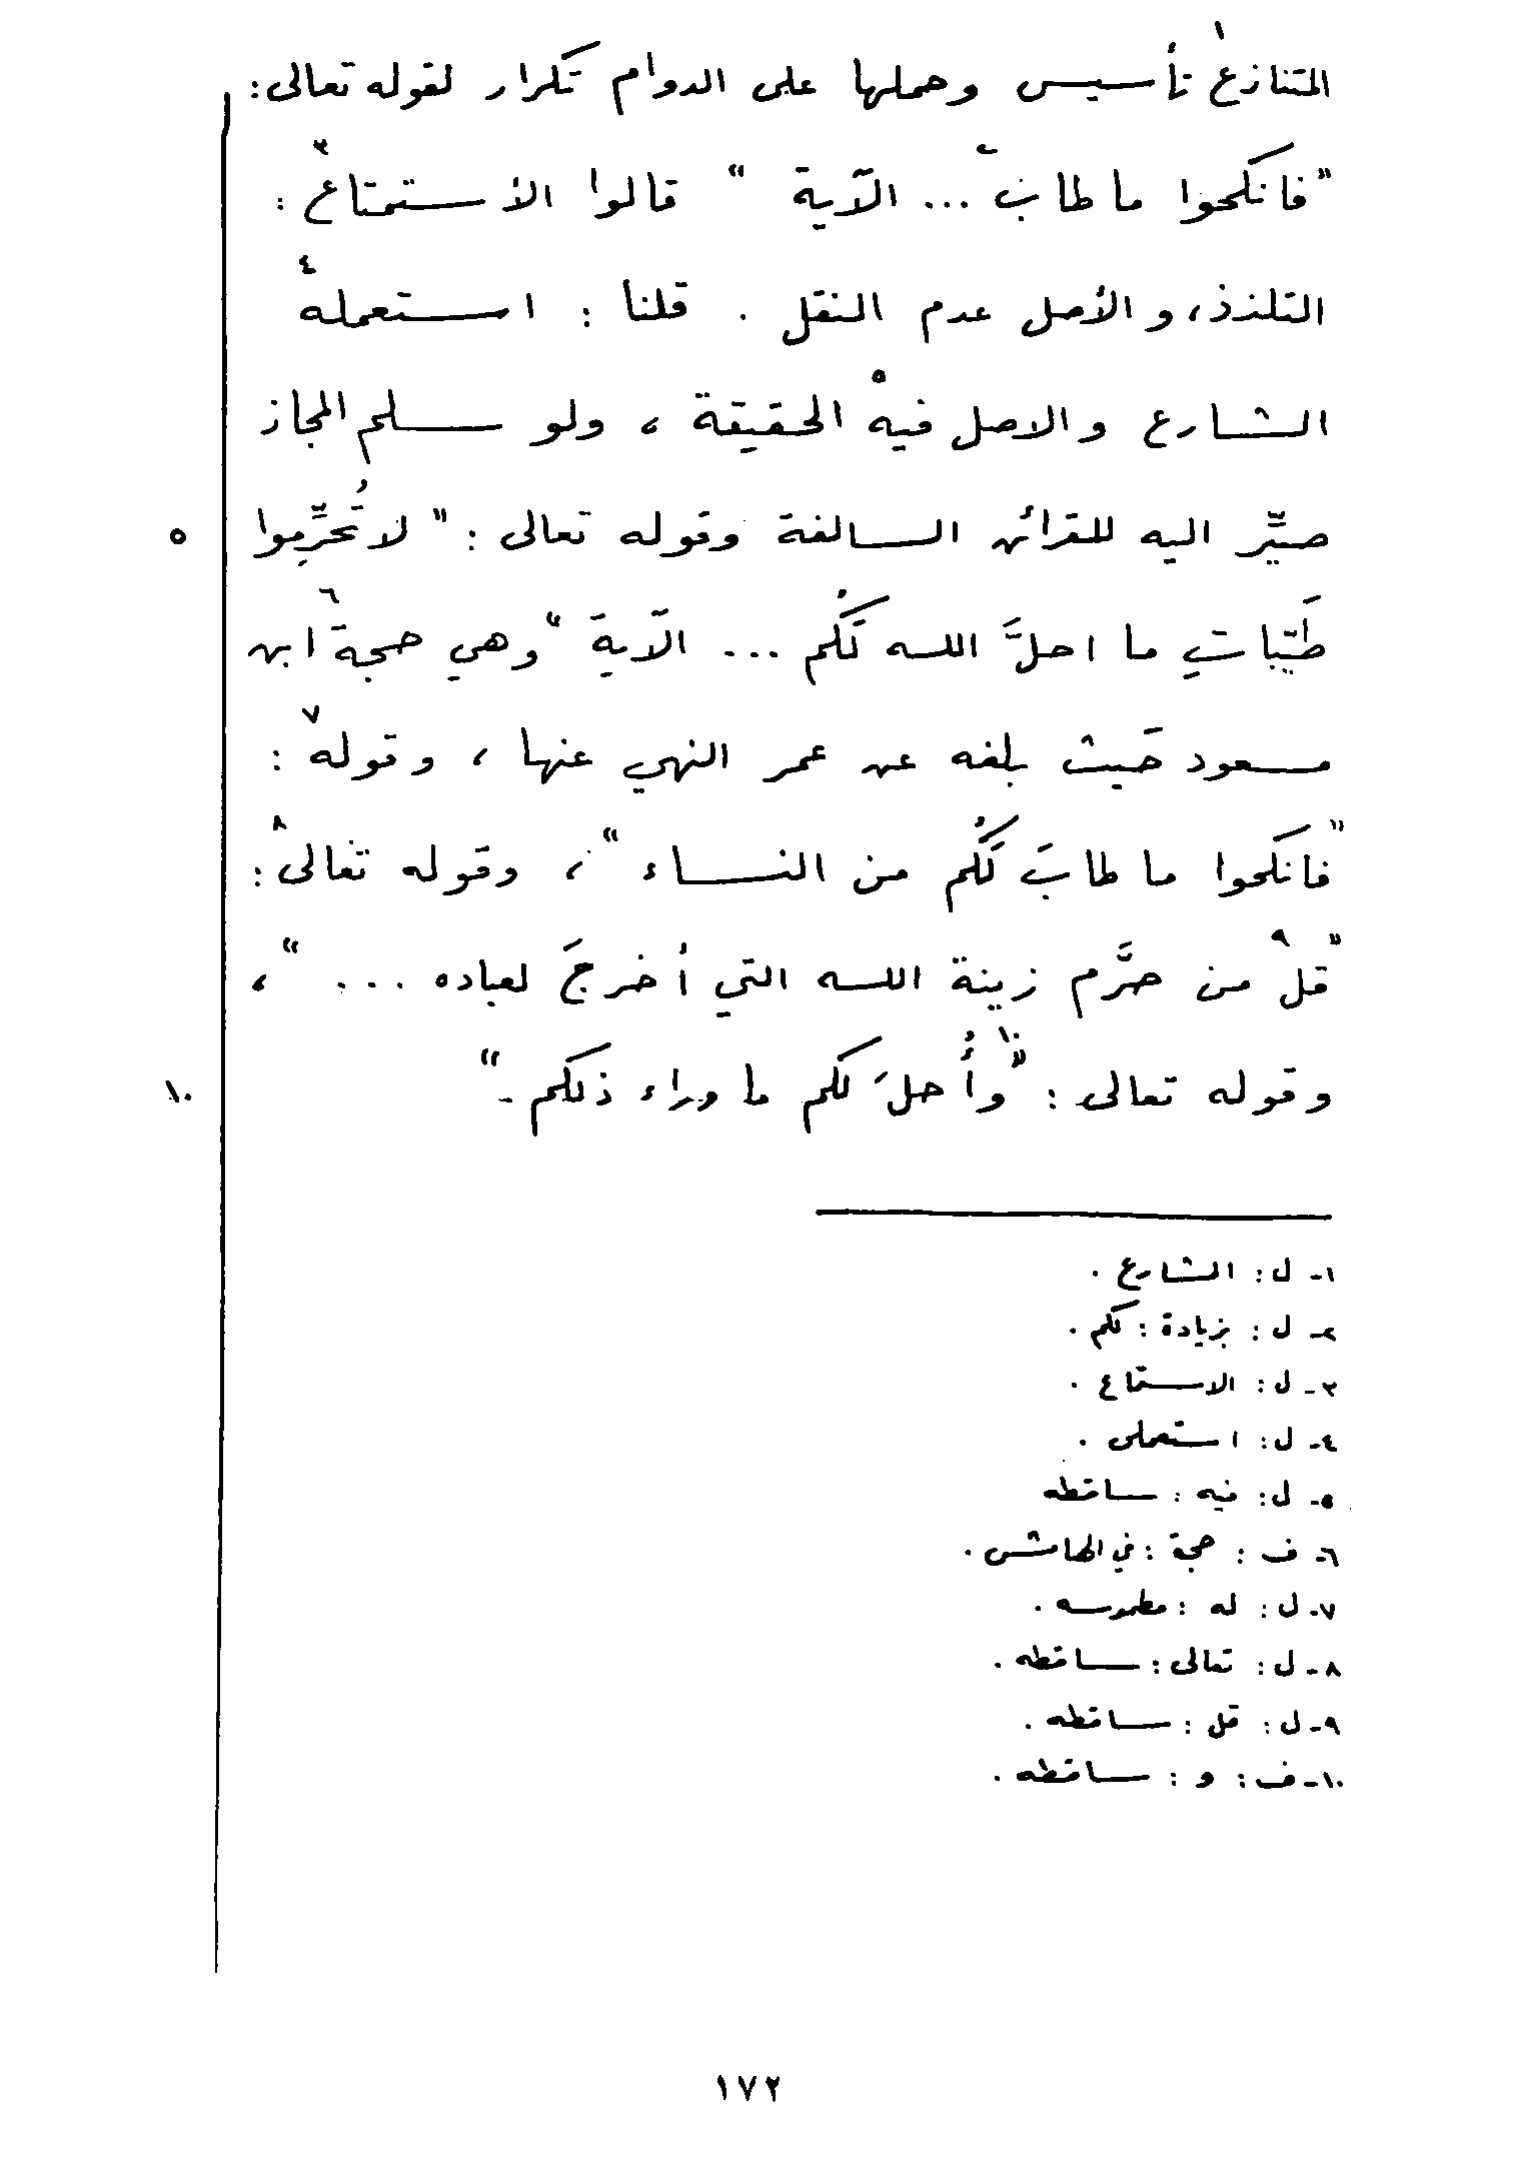 المتنازع١ تأسيس وحملها على الدوام تكرار لقوله تعالى:
"فانكحوا ما طاب٢ ... الآية " قالوا الأستمتاع٣ :
التلذذ، والأصل عدم النقل . قلنا : استعمله٤
الشارع والاصل فيه٥ الحقيقة ، ولو سلم المجاز
صيِّر اليه للقرائن السالفة وقوله تعالى : " لا تُحَرِّموا
٥
طَيّباتِ ما احلَّ الله لَكُم ... الآية " وهي حجة٦ ابن
مسعود حَيث بلغه عن عمر النهي عنها ، وقوله٧ :
"فانكحوا ما طابَ لَكُم من النساء " ، وقوله تعالى٨ :
"قل٩ من حرَّم زينة الله التي أخرجَ لعباده ... " ،
وقوله تعالى : "١٠وأُحلَ لكم ما وراء ذلكم -"
١٠
١- ل : الشارع .
٢- ل : بزيادة : لكم .
٣- ل : الاستماع .
٤- ل : استعملى .
٥- ل : فيه : ساقطه
٦- ف : حجة : في الهامش .
٧- ل : له : مطموسه .
٨- ل : تعالى : ساقطه .
٩- ل : قل : ساقطه .
١٠- ف : و : ساقطه .
١٧٢